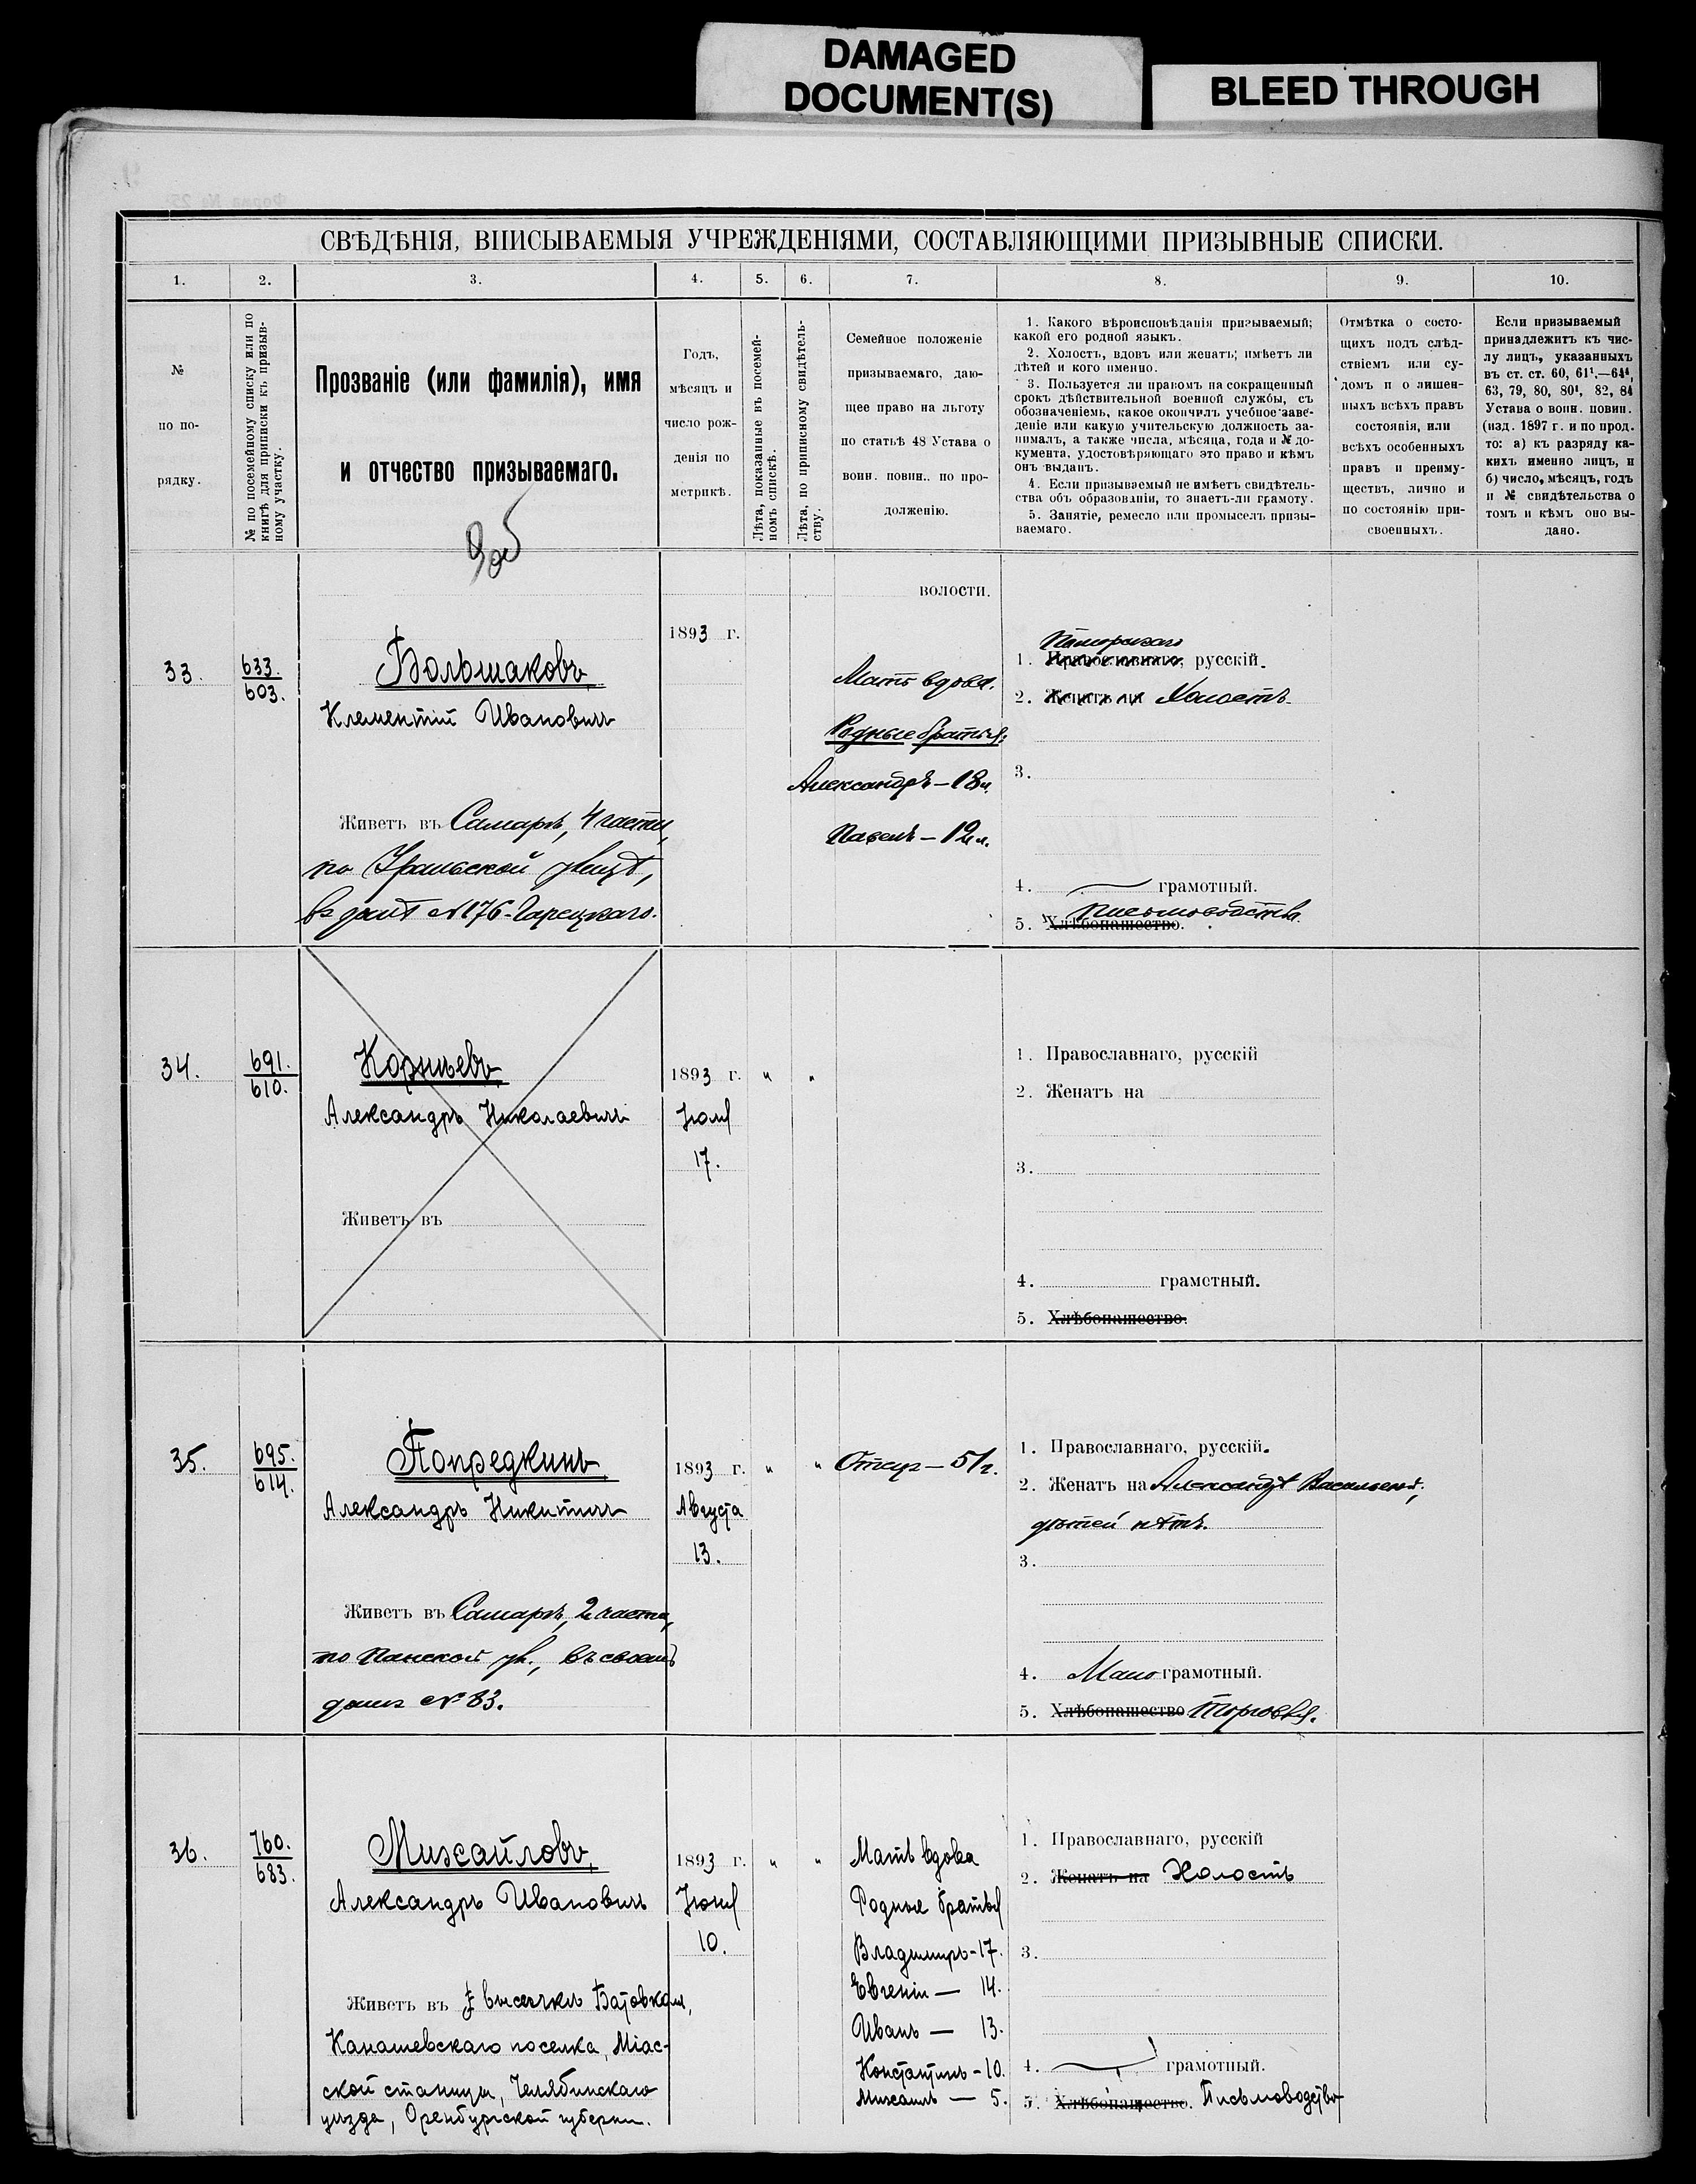 DAMAGED
DOCUMENT(S)
BLEED THROUGH
СВѢДѢНІЯ, ВПИСЫВАЕМЫЯ УЧРЕЖДЕНІЯМИ, СОСТАВЛЯЮЩИМИ ПРИЗЫВНЫЕ СПИСКИ.
1. 2. 3. 4. 5. 6. 7. 8. 9. 10.
№
по по-
рядку.
№ по посемейному списку или по
книгѣ для приписки къ призыв-
ному участку.
Прозваніе (или фамилія), имя
и отчество призываемаго.
Годъ,
мѣсяцъ и
число рож-
денія по
метрикѣ.
Лѣта, показанные въ посемей-
номъ спискѣ.
Лѣта, по приписному свидѣтель-
ству.
Семейное положеніе
призываемаго, даю-
щее право на льготу
по статьѣ 48 Устава о
воин. повин.. по про-
долженію.
1. Какого вѣроисповѣданія призываемый;
какой его родной языкъ.
2. Холостъ, вдовъ или женатъ; имѣетъ ли
дѣтей и кого именно.
3. Пользуется ли правомъ на сокращенный
срокъ дѣйствительной военной службы, съ
обозначеніемъ, какое окончилъ учебное заве-
деніе или какую учительскую должность за-
нималъ, а также числа, мѣсяца, года и № до-
кумента, удостовѣряющаго это право и кѣмъ
онъ выданъ.
4. Если призываемый не имѣетъ свидѣтель-
ства объ образованіи, то знаетъ-ли грамоту.
5. Занятіе, ремесло или промыселъ призы-
ваемаго.
Отмѣтка о состо-
щихъ подъ слѣд-
ствіемъ или су-
домъ и о лишен-
ныхъ всѣхъ правъ
состоянія, или
всѣхъ особенныхъ
правъ и преиму-
ществъ, лично и
по состоянію при-
своенныхъ.
Если призываемый
принадлежитъ къ чис-
лу лицъ, указанныхъ
въ ст. ст. 60, 61¹.—64⁴,
63, 79, 80, 80¹, 82, 84
Устава о воин. повин.
(изд. 1897 г. и по прод.
то: а) къ разряду ка-
кихъ именно лицъ, и
б) число, мѣсяцъ, годъ
и № свидѣтельства о
томъ и кѣмъ оно вы-
дано.
волости.
33. 633. 603.
Большаковъ,
Клементій Ивановичъ
Живетъ въ Самарѣ, 4 части,
по Уральской улицѣ,
въ домѣ №176
1893 г.
Мать вдова.
Родные братья:
Александръ — 18 л.
Павелъ — 12 л.
Поморскаго
1. Православнаго, русскій.
2. Женатъ на Холостъ.
3.
4. грамотный.
Письмоводство.
5. Хлѣбопашество.
34. 691. 610.
Корнѣевъ,
Александръ Николаевичъ
Живетъ въ
1893 г. " "
17.
1. Православнаго, русскій
2. Женатъ на
3.
4. грамотный.
5. Хлѣбопашество.
35. 695. 614.
Попредкинъ,
Александръ Никитичъ
Живетъ въ Самарѣ, 2 части,
по Панской ул., въ своемъ
домѣ № 83.
1893 г. " "
Августа
13.
Отцу — 51 г.
1. Православнаго, русскій.
2. Женатъ на Александрѣ Васильевнѣ,
дѣтей нѣтъ.
3.
4. Мало грамотный.
5. Хлѣбопашество Торговля.
36. 760. 683.
Михайловъ,
Александръ Ивановичъ
Живетъ въ
Канашевскаго поселка, Міас-
ской станицы, Челябинскаго
уѣзда, Оренбургской губерніи.
1893 г. " "
10.
Мать вдова
Родные братья
Владиміръ - 17.
Евгеній — 14.
Иванъ — 13.
Константинъ - 10.
Михаилъ — 5.
1. Православнаго, русскій
2. Женатъ на Холостъ
3.
4. грамотный.
5. Хлѣбопашество. Письмоводство